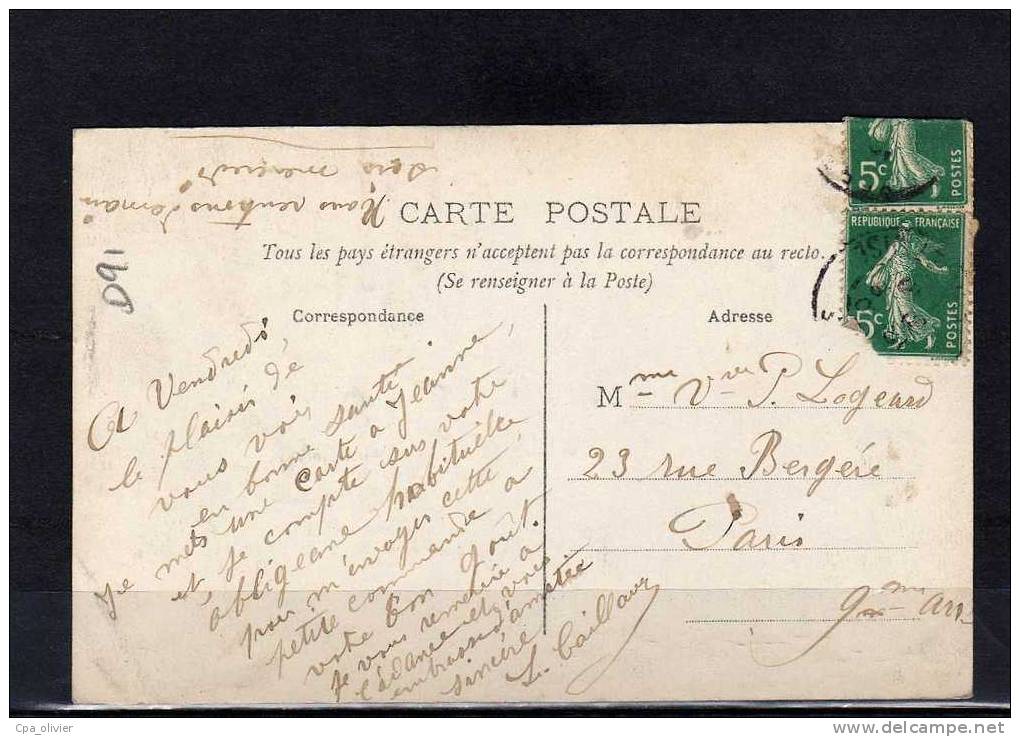 Nous rentrons demain
soir mercredi
CARTE POSTALE
Tous les pays étrangers n'acceptent pas la correspondance au recto.
(Se renseigner à la Poste)
D91
Correspondance
A Vendredi,
le plaisir de
vous voir
en bonne santé
Je mets une carte a Jeanne,
et je compte sur votre
obligeance habituelle
pour m'envoyer cette
petite commande a
votre bon goût.
Je vous remercie a
l'avance et vous
embrasse d'amitié
sincère
Adresse
Mme Vve P. Logeard
23 rue Bergère
Paris
9me arr
5c
POSTES
REPUBLIQUE FRANÇAISE
5c
POSTES
Cpa_olivier
www.delcampe.net